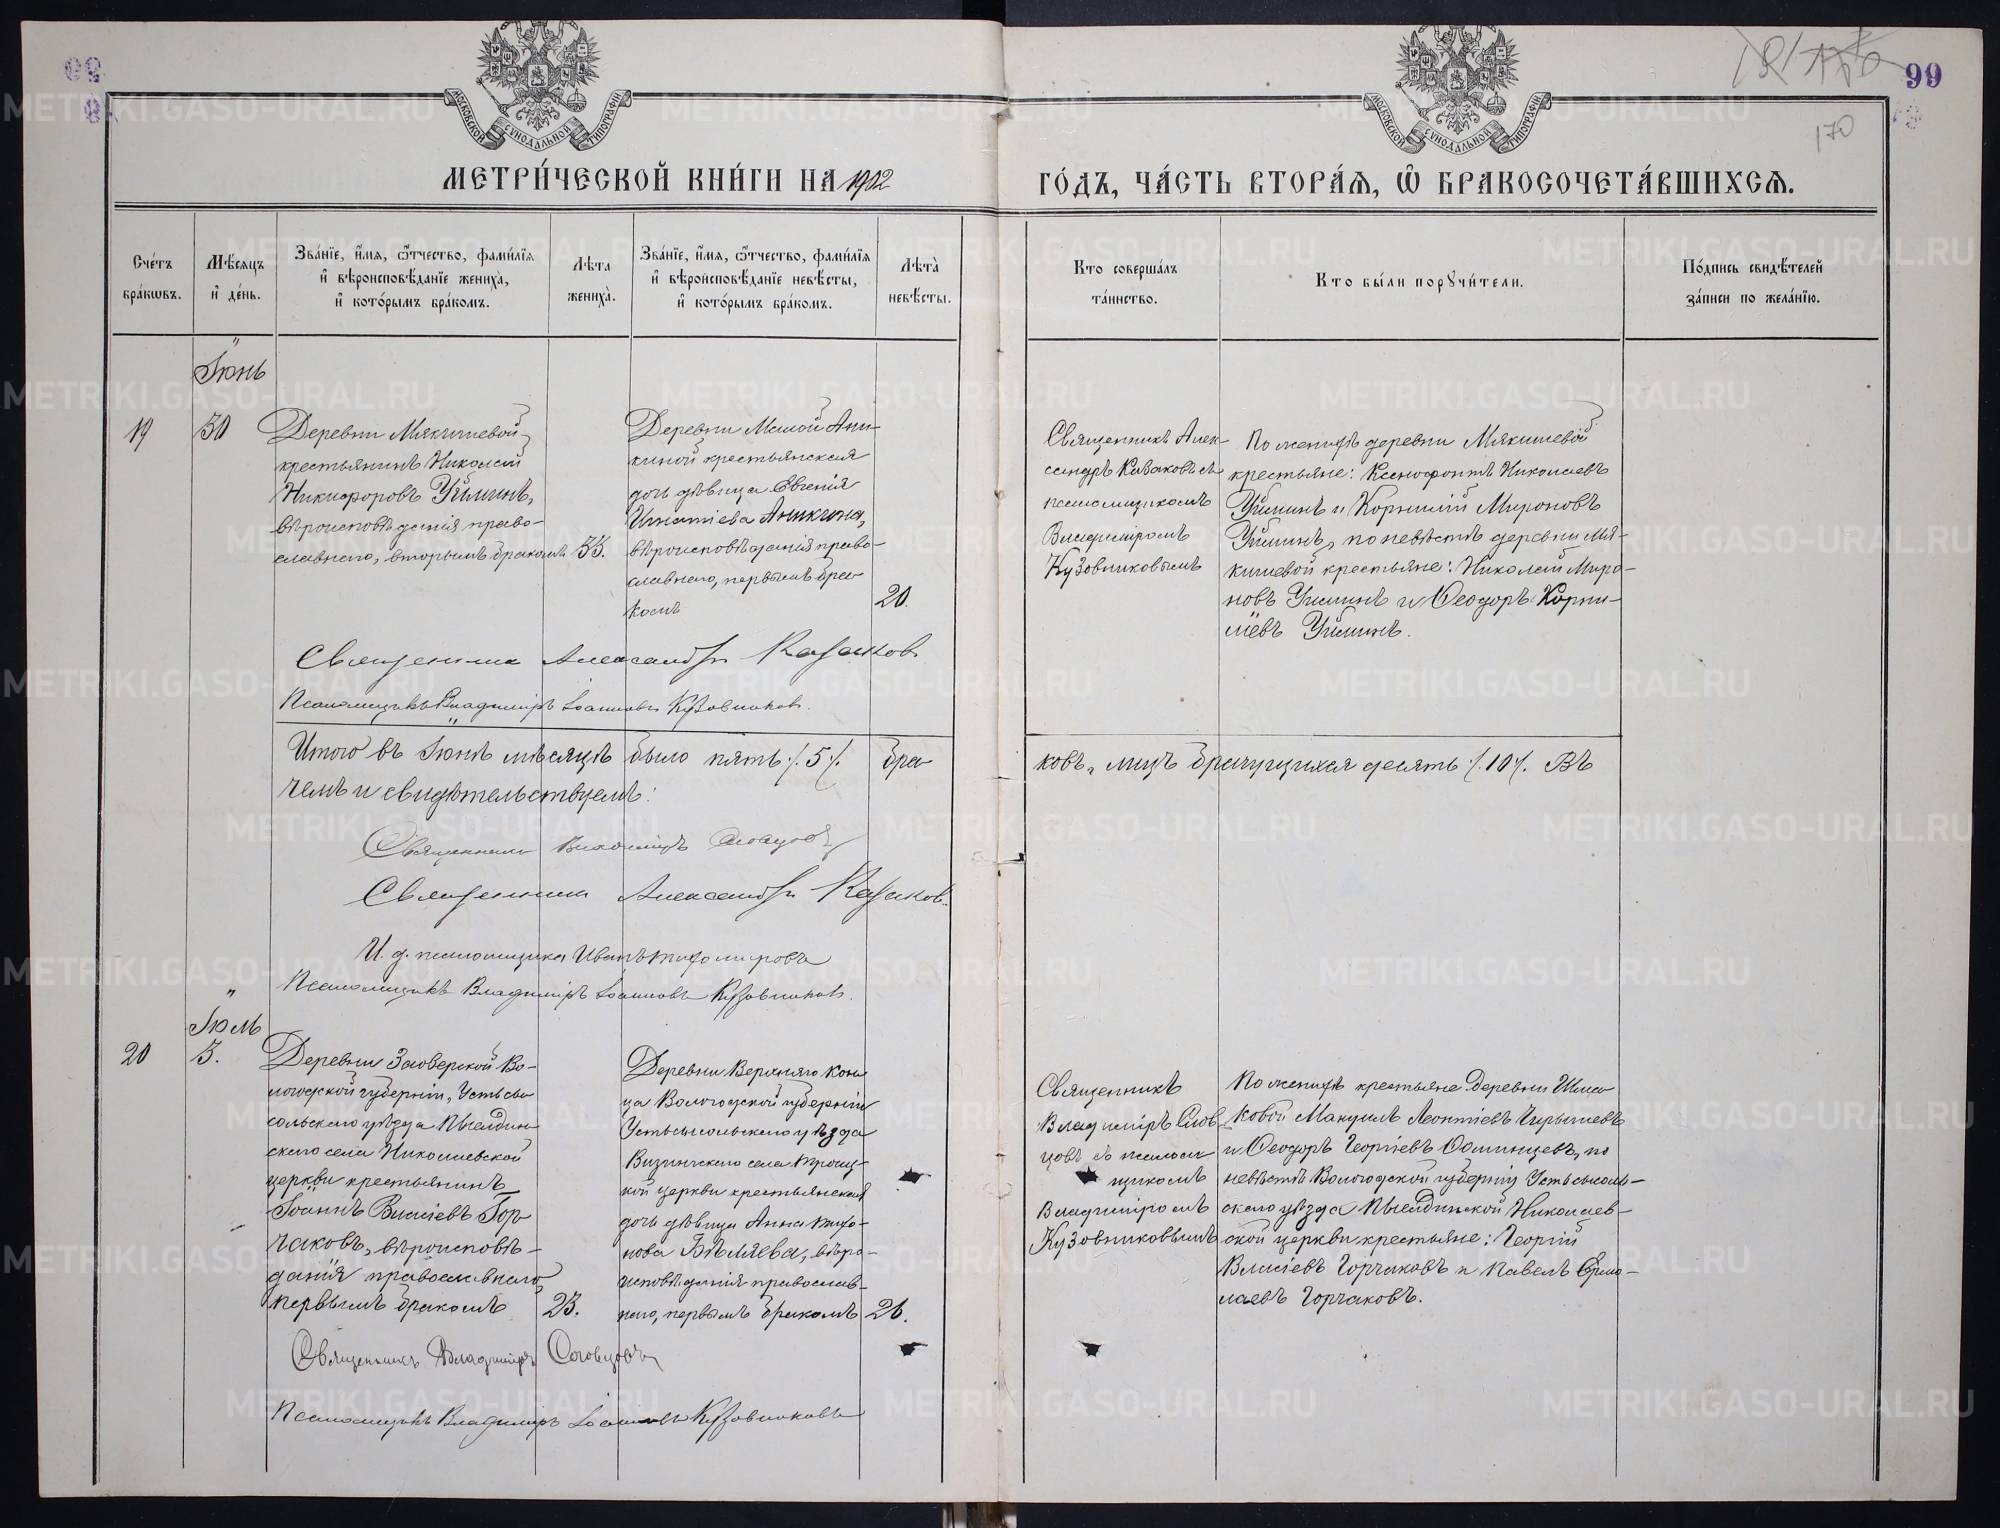 99
170
МОСКОВСКОЙ СѴНОДАЛЬНОЙ ТИПОГРАФІИ
МОСКОВСКОЙ СѴНОДАЛЬНОЙ ТИПОГРАФІИ
МЕТРИ́ЧЕСКОЙ КНИ́ГИ НА 1902
ГО́ДЪ, ЧА́СТЬ ВТОРА́Ѧ, Ѿ БРАКОСОЧЕТА́ВШИХСѦ.
Сче́тъ бра́кѡвъ.
Мѣ́сяцъ и҆ де́нь.
Зва́нїе, и҆́мѧ, ѻ҆́тчество, фами́лїѧ
и҆ вѣроисповѣ́данїе жениха̀,
и҆ кото́рымъ бра́комъ.
Лѣ́та жениха̀.
Зва́нїе, и҆́мѧ, ѻ҆́тчество, фами́лїѧ
и҆ вѣроисповѣ́данїе невѣ́сты,
и҆ кото́рымъ бра́комъ.
Лѣта̀ невѣ́сты.
Кто соверша́лъ та́инство.
Кто бы́ли порꙋчи́тели.
По́дпись свидѣ́телей
за́писи по жела́нїю.
Іюнь
19
30
Деревни Мякишевой
крестьянинъ Николай
Никифоровъ Уйминъ,
вѣроисповѣданія право-
славнаго, вторымъ бракомъ
33.
Деревни Малой Ани-
киной крестьянская
дочь дѣвица Евгенія
Игнатіева Аникина,
вѣроисповѣданія право-
славнаго, первымъ бра-
комъ
20.
Священникъ Алек-
сандръ Казаковъ съ
псаломщикомъ
Владиміромъ
Кузовниковымъ
По женихѣ деревни Мякишевой
крестьяне: Ксенофонтъ Николаевъ
Уйминъ и Корнилій Мироновъ
Уйминъ, по невѣстѣ деревни Мя-
кишевой крестьяне: Николай Миро-
новъ Уйминъ и Ѳеодоръ Корни-
ліевъ Уйминъ.
Священникъ Александръ Казаковъ
Псаломщикъ Владиміръ Іоанновъ Кузовниковъ.
Итого въ Іюнѣ мѣсяцѣ было пять /.5/. бра-
ковъ, лицъ брачущихся десять /.10/. Въ
чемъ и свидѣтельствуемъ:
Священникъ Владиміръ Словцовъ
Священникъ Александръ Казаковъ.
И. д. псаломщика Иванъ Тихомировъ
Псаломщикъ Владиміръ Іоанновъ Кузовниковъ.
Іюль
20
3.
Деревни Заозерской Во-
логодской губерніи, Устьсы-
сольскаго уѣзда Пыелдин-
скаго села Николаевской
церкви крестьянинъ
Іоаннъ Власіевъ Гор-
чаковъ, вѣроисповѣ-
данія православнаго,
первымъ бракомъ
23.
Деревни Верхняго Кон-
ца Вологодской губерніи
Устьсысольскаго уѣзда
Визингскаго села Троиц-
кой церкви крестьянская
дочь дѣвица Анна Тихо-
нова Бѣляева, вѣро-
исповѣданія православ-
наго, первымъ бракомъ
26.
Священникъ
Владиміръ Слов-
цовъ съ псалом-
щикомъ
Владиміромъ
Кузовниковымъ
По женихѣ крестьяне деревни Шма-
ковой Мануилъ Леонтіевъ
и Ѳеодоръ Георгіевъ Осминцевъ, по
невѣстѣ Вологодской губерніи Устьсысоль-
скаго уѣзда Пыелдинской Николаев-
ской церкви крестьяне: Георгій
Власіевъ Горчаковъ и Павелъ Ермо-
лаевъ Горчаковъ.
Священникъ Владиміръ Словцовъ
Псаломщикъ Владиміръ Іоанновъ Кузовниковъ